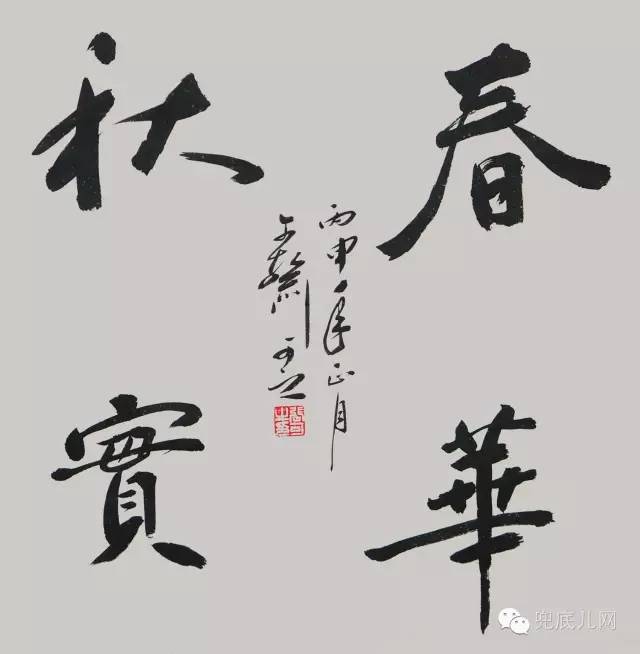 春華
秋實
丙申年正月
兜底儿网